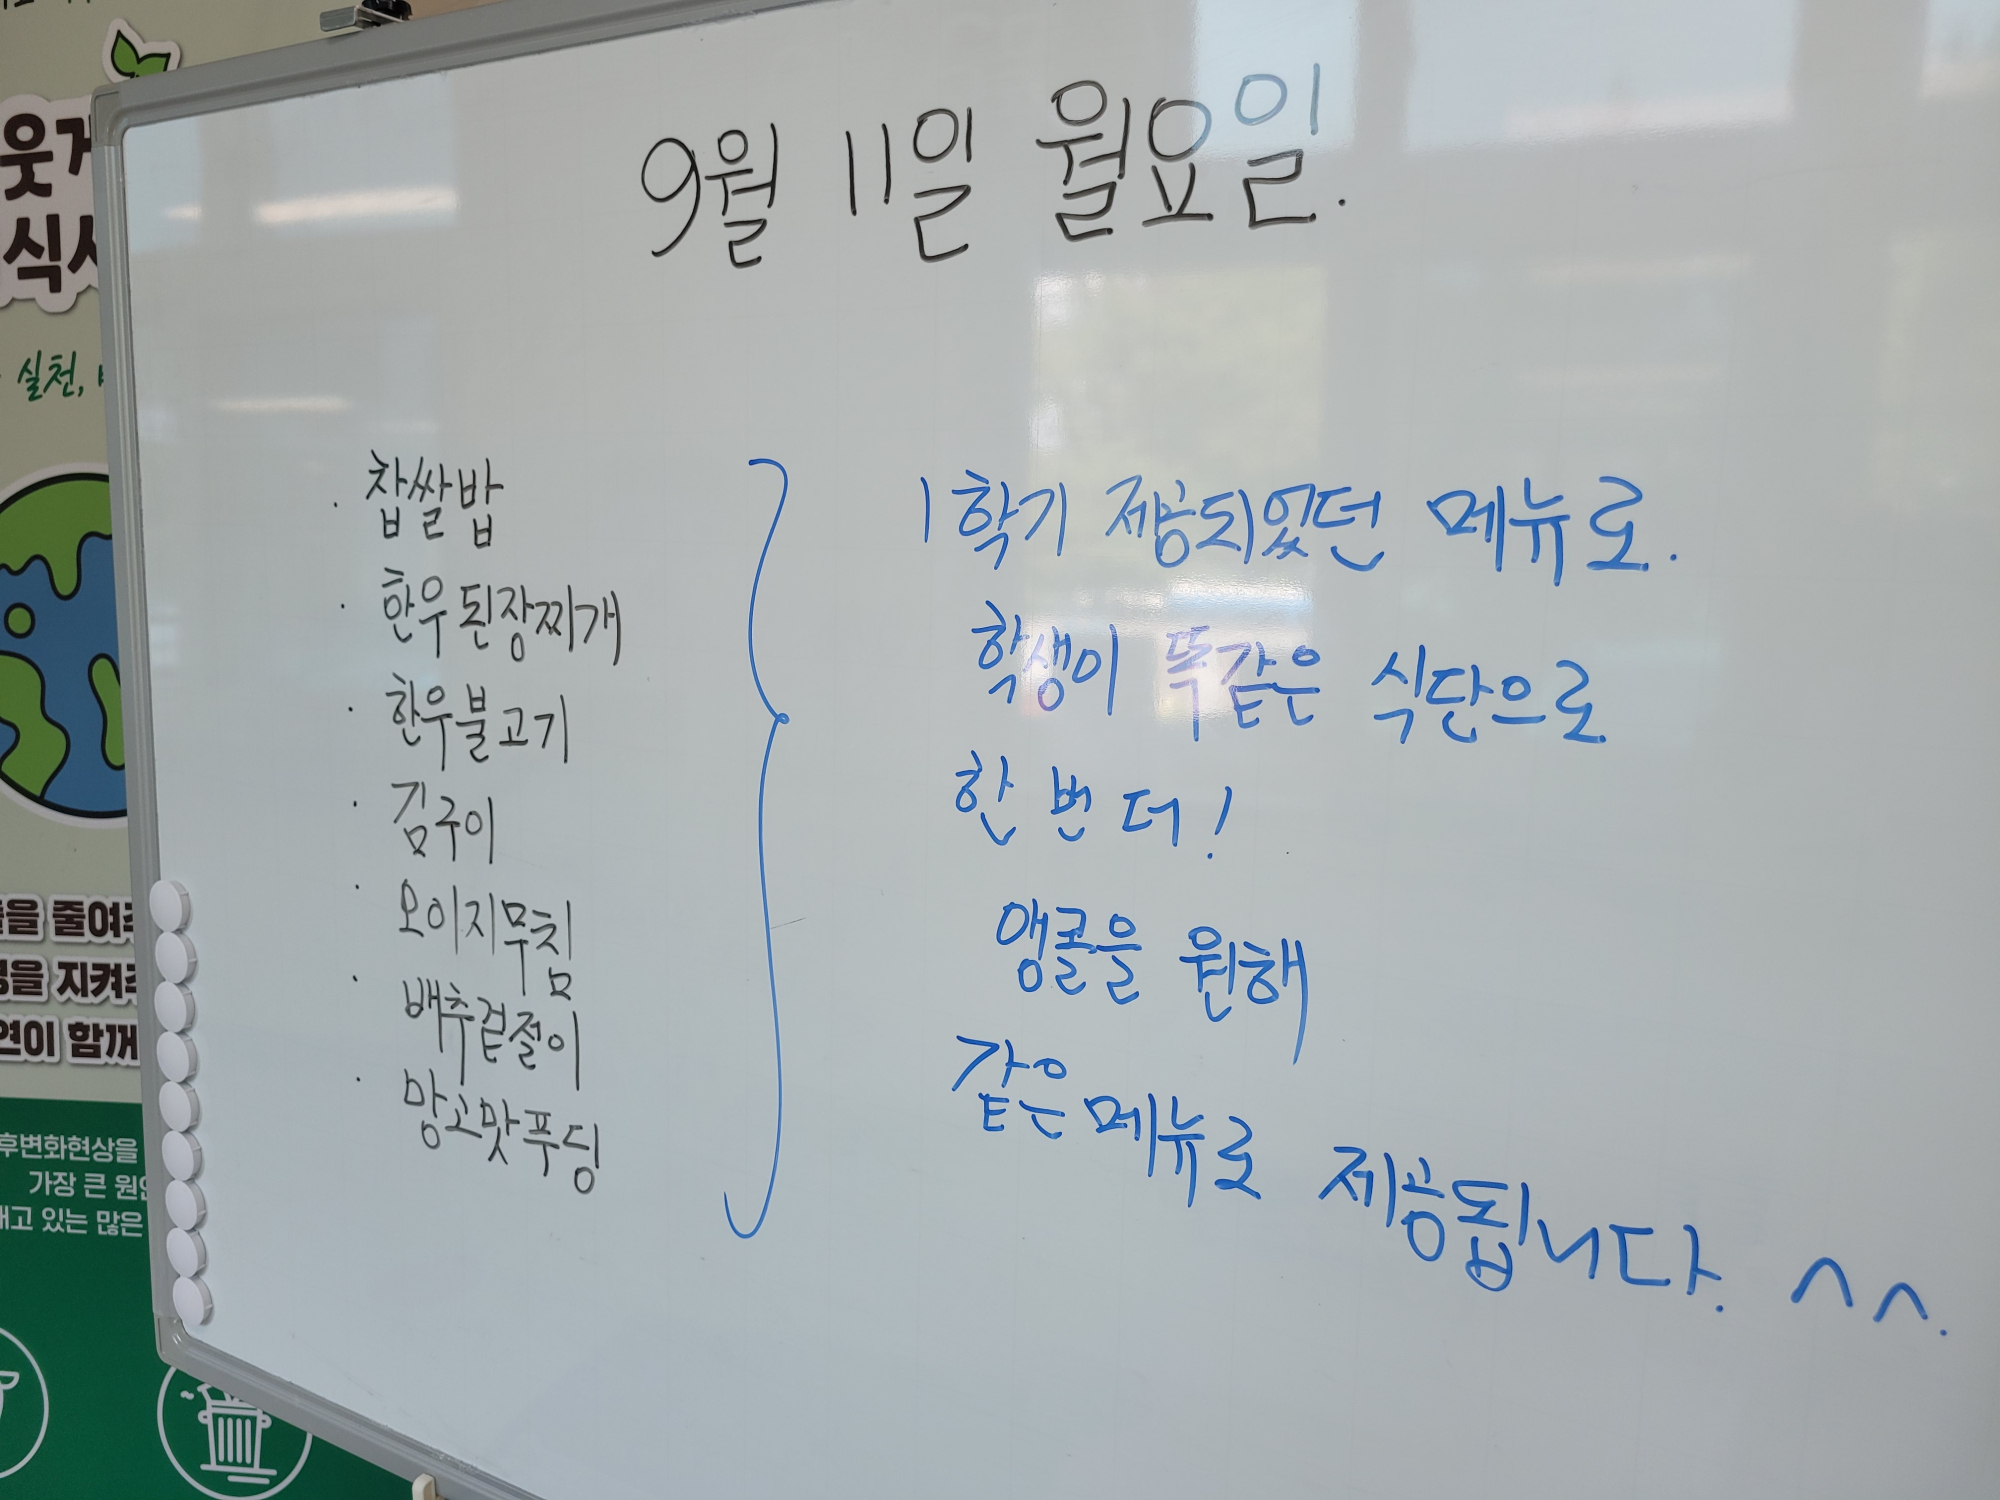 9월 11일 월요일.
· 찹쌀밥
· 한우된장찌개
· 한우불고기
· 김구이
· 오이지무침
· 배추겉절이
· 망고맛푸딩
1학기 제공되었던 메뉴로.
학생이 똑같은 식단으로
한 번 더!
앵콜을 원해
같은메뉴로 제공됩니다. ^^.
실천,
줄여주
지켜주
함께
후변화현상을
가장 큰 원인
있는 많은